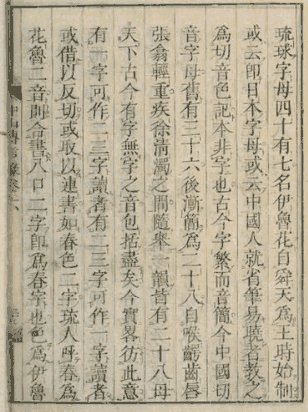 琉球字母四十有七名伊魯花自舜天爲王時始制
或云卽日本字母或云中國人就省筆易曉者教之
爲切音色記本非字也古今字繁而音簡今中國切
音字母舊有三十六後漸簡爲二十八自喉齶齒唇
張翕輕重疾徐清濁之間隨舉一韻皆有二十八母
天下古今有字無字之音包括盡矣今實畧彷此意
有一字可作二三字讀者有二三字可作一字讀者
或借以反切或取以連書如春色二字琉人呼春爲
花魯二音則合書ハロ二字卽爲春字也色爲伊魯
中山傳信錄卷六